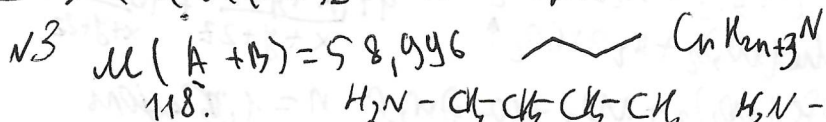 N3 M(A+B)=58,996 CnH2n+3N
118. H2N-CH2-CH2-CH2-CH2 H2N-